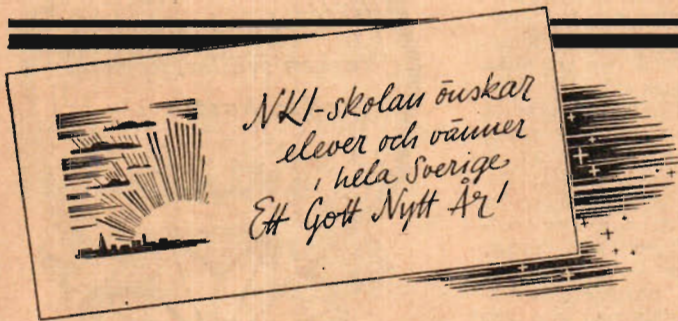 NKI-skolan önskar
elever och vänner
i hela Sverige
Ett Gott Nytt År!